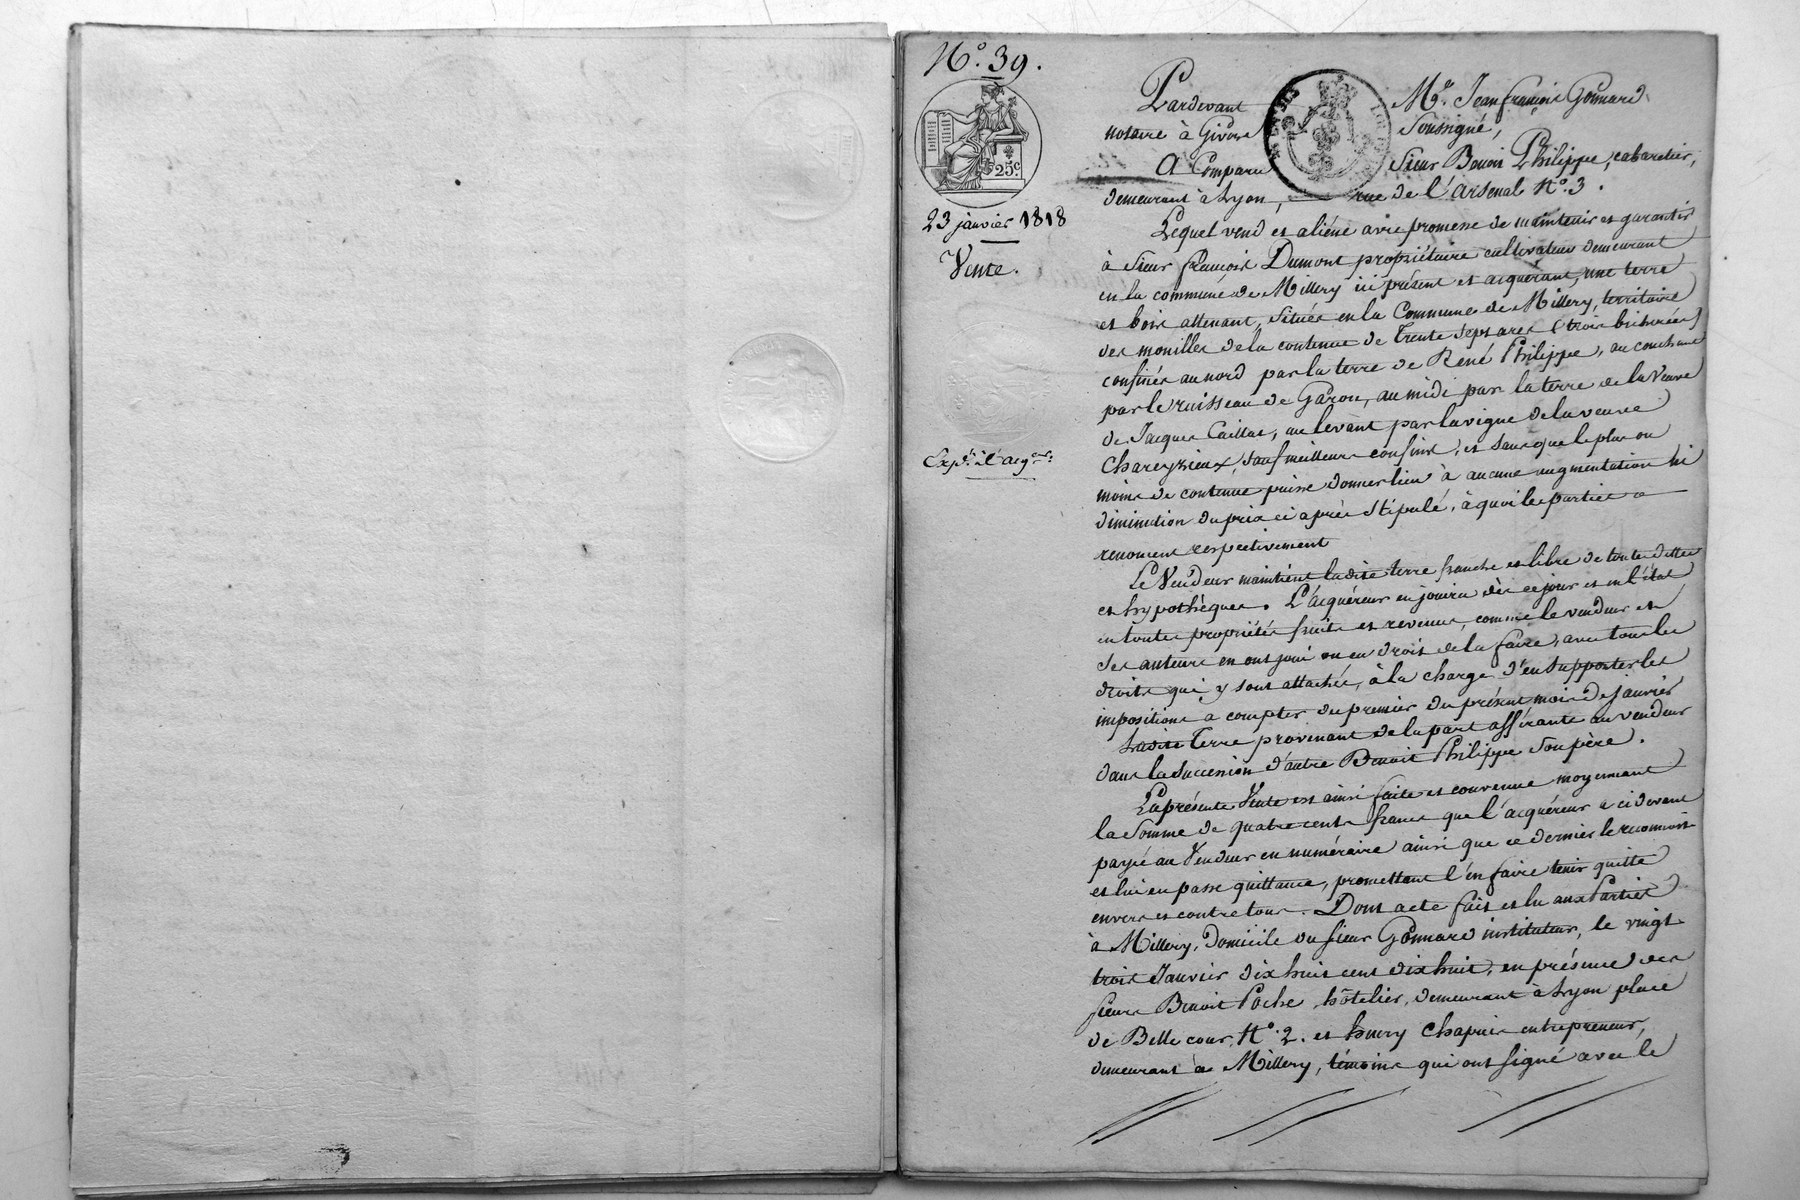 N.º 39.
25c
23 janvier 1818
Vente.
Exp.on à l'acq.eur
Pardevant M.e Jean françois Gonnard
notaire à Givors Soussigné,
A Comparu Sieur Benoit Philippe, cabaretier,
demeurant à Lyon, rue de l'arsenal N.º 3.
Lequel vend et aliéne avec promesse de maintenir et garantir
à Sieur françois Dumont propriétaire cultivateur demeurant
en la commune de Millery ici présent et acquérant, une terre
et bois attenant, situés en la Commune de Millery, territoire
des mouilles de la contenue de trente sept ares (trois bicherées)
confinés au nord par la terre de René Philippe, au couchant
par le ruisseau de Garon, au midi par la terre de la Veuve
de Jacques Caillat, au levant par la vigne de la veuve
Chareyzieux, sauf meilleurs confins, et sans que le plus ou
moins de contenue puisse donner lieu à aucune augmentation ni
diminution du prix ci après stipulé, à quoi les parties
renoncent respectivement
Le Vendeur maintient ladite terre franche et libre de toutes dettes
et hypothèques. L'acquéreur en jouira dès ce jour et en l'état
en toutes propriétés fruits et revenus, comme le vendeur et
ses auteurs en ont joui ou eu droit de la faire, avec tous les
droits qui y sont attachés, à la charge d'en supporter les
impositions a compter du premier du présent mois de janvier
Ladite terre provenant de la part afférante au vendeur
dans la succession d'autre Benoit Philippe son père.
La présente Vente est ainsi faite et convenue moyennant
la somme de quatre cents francs que l'acquéreur a ci devant
payé au Vendeur en numéraire ainsi que ce dernier le reconnoit
et lui en passe quittance, promettant l'en faire tenir quitte
envers et contre tous. Dont acte fait et lu aux Parties
à Millery, domicile du sieur Gonnard instituteur, le vingt
trois Janvier dix huit cent dix huit, en présence des
sieurs Benoit Poche hôtelier, demeurant à Lyon place
de Belle cour, N.º 2. et henry Chapuis entrepreneur,
demeurant à Millery, témoins qui ont signé avec le